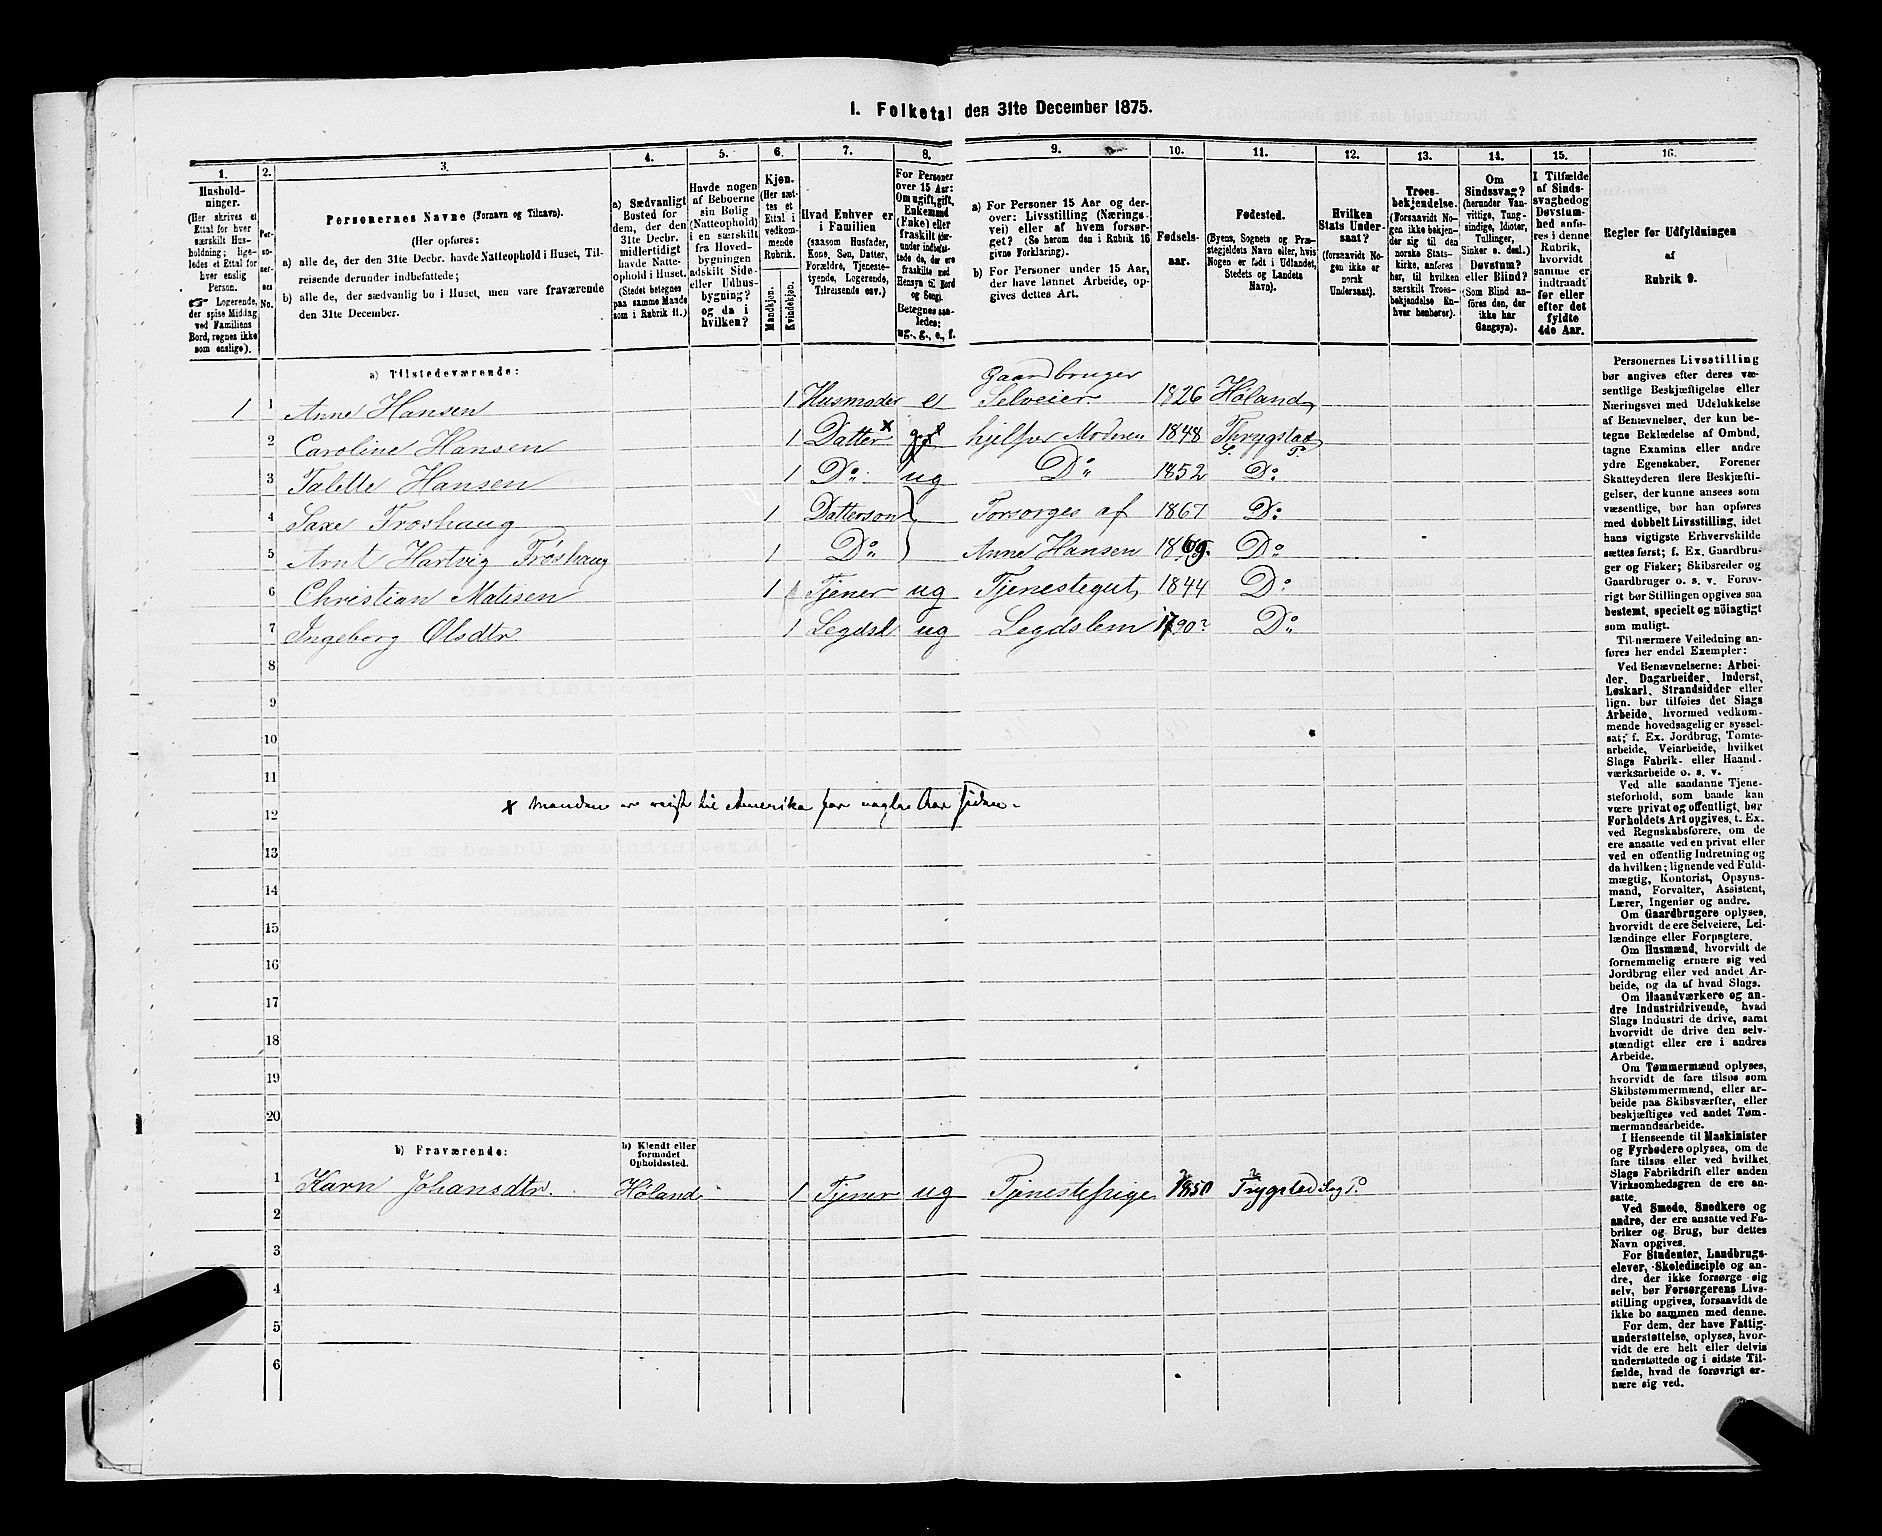 1. Folketal den 31te December 1875.
1. 2. 3. 4. 5. 6. 7. 8. 9. 10. 11. 12. 13. 14. 15. 16.
Husholdninger.
(Her skrives et Ettal for hver særskilt Husholdning; ligeledes et Ettal for hver enslig Person.
Logerende, der spise Middag ved Familiens Bord, regnes ikke som enslige).
Personernes No.
Personernes Navne (Fornavn og Tilnavn).
(Her opføres:
a) alle de, der den 31te Decbr. havde Natteophold i Huset, Tilreisende derunder indbefattede;
b) alle de, der sædvanlig bo i Huset, men vare fraværende den 31te December.
a) Sædvanligt Bosted for dem, der den 31te Decbr. midlertidigt havde Natteophold i Huset.
(Stedet betegnes paa samme Maade som i Rubrik 11.)
Havde nogen af Beboerne sin Bolig (Natteophold) i en særskilt fra Hovedbygningen adskilt Side- eller Udhusbygning? og da i hvilken?
Kjøn.
(Her sættes et Ettal i vedkommende Rubrik.
Mandkjøn.
Kvindekjøn.
Hvad Enhver er i Familien
(saasom Husfader, Kone, Søn, Datter, Forældre, Tjenestetyende, Logerende, Tilreisende osv.)
For Personer over 15 Aar: Om ugift, gift, Enkemand (Enke) eller fraskilt
Betegnes saaledes: ug., g., e., f.
a) For Personer 15 Aar og derover: Livsstilling (Næringsvei) eller af hvem forsørget? (Se herom den i Rubrik 16 givne Forklaring).
b) For Personer under 15 Aar, der have lønnet Arbeide, opgives dettes Art.
Fødselsaar.
Fødested.
(Byens, Sognets og Præstegjeldets Navn eller, hvis Nogen er født i Udlandet, Stedets og Landets Navn).
Hvilken Stats Undersaat?
(forsaavidt Nogen ikke er norsk Undersaat).
Troesbekjendelse.
(Forsaavidt Nogen ikke bekjender sig til den norske Statskirke, anføres her, til hvilken særskilt Troesbekjendelse Enhver henhører).
Om Sindssvag? (herunder Vanvittige, Idioter, Tungsindige, Tullinger, Sinker o. desl.) Døvstum? eller Blind? (Som Blind anføres den, der ikke har Gangsyn).
I Tilfælde af Sindssvaghed og Døvstumhed anføres i denne Rubrik, hvorvidt samme er indtraadt før eller efter det fyldte 4de Aar.
Regler for Udfyldningen af Rubrik 9.
a) Tilstedeværende:
Gaardbruger
1 1 Anne Hansen 1 Husmoder e Selveier 1826 Høland
2 Caroline Hansen 1 Datter x hjelper Moderen 1848 Thrygstad
S. P.
3 Talette Hansen 1 Do. ug Do 1852 Do
4 Saxe Froshaug 1 Datterson Forsorges af 1867 Do
5 Arnt Hartvig Froshaug 1 Do Anne Hansen 1869. Do
6 Christian Matisen 1 Tjener ug Tjenestegut 1844 Do
7 Ingeborg Olsdtr 1 Legdsl ug Legdslem 1790? Do
8
9
10
11
12
x Manden er reist til Amerika for nogle Aar siden.
13
14
15
16
17
18
19
20
b) Fraværende:
b) Kjendt eller formodet Opholdssted.
1 Karn Johansdtr. Høland 1 Tjener ug Tjenestepige 1850 Trygstad Sog P.
2
3
4
5
6
Personernes Livsstilling
bør angives efter deres væ-
sentlige Beskjæftigelse eller
Næringsvei med Udelukkelse
af Benævnelser, der kun be-
tegne Beklædelse af Ombud,
tagne Examina eller andre
ydre Egenskaber. Forener
Skatteyderen flere Beskjæfti-
gelser, der kunne ansees som
væsentlige, bør han opføres
med dobbelt Livsstilling, idet
hans vigtigste Erhvervskilde
sættes først; f. Ex. Gaardbru-
ger og Fisker; Skibsreder og
Gaardbruger o. s. v. Forøv-
rigt bør Stillingen opgives saa
bestemt, specielt og nöiagtigt
som muligt.
Til nærmere Veiledning an-
føres her endel Exempler:
Ved Benævnelserne: Arbei-
der, Dagarbeider, Inderst,
Løskarl, Strandsidder eller
lign. bør tilføies det Slags
Arbeide, hvormed vedkom-
mende hovedsagelig er syssel-
sat; f. Ex. Jordbrug, Tomte-
arbeide, Veiarbeide, hvilket
Slags Fabrik- eller Haand-
værksarbeide o. s. v.
Ved alle saadanne Tjene-
steforhold, som baade kan
være privat og offentligt, bør
Forholdets Art opgives, t. Ex.
ved Regnskabsførere, om de
ere ansatte ved en privat eller
ved en offentlig Indretning og
da hvilken; lignende ved Fuld-
mægtig, Kontorist, Opsyns-
mand, Forvalter, Assistent,
Lærer, Ingeniør og andre.
Om Gaardbrugere oplyses,
hvorvidt de ere Selveiere, Lei-
lændinge eller Forpagtere.
Om Husmænd, hvorvidt de
fornemmelig ernære sig ved
Jordbrug eller ved andet Ar-
beide, og da af hvad Slags.
Om Haandværkere og an-
dre Industridrivende, hvad
Slags Industri de drive, samt
hvorvidt de drive den selv-
stændigt eller ere i andres
Arbeide.
Om Tømmermænd oplyses,
hvorvidt de fare tilsøs som
Skibstømmermænd, eller ar-
beide paa Skibsværfter, eller
beskjæftiges ved andet Tøm-
mermandsarbeide.
I Henseende til Maskinister
og Fyrbødere oplyses, om de
fare tilsøs eller ved hvilket
Slags Fabrikdrift eller anden
Virksomhedsgren de ere an-
satte.
Ved Smede, Snedkere og
andre, der ere ansatte ved Fa-
briker og Brug, bør dettes
Navn opgives.
For Studenter, Landbrugs-
elever, Skoledisciple og an-
dre, der ikke forsørge sig
selv, bør Forsørgerens Livs-
stilling opgives, forsaavidt de
ikke bo sammen med denne.
For dem, der have Fattig-
understøttelse, oplyses, hvor-
vidt de ere helt eller delvis
understøttede og i sidste Til-
fælde, hvad de forøvrigt er-
nære sig ved.